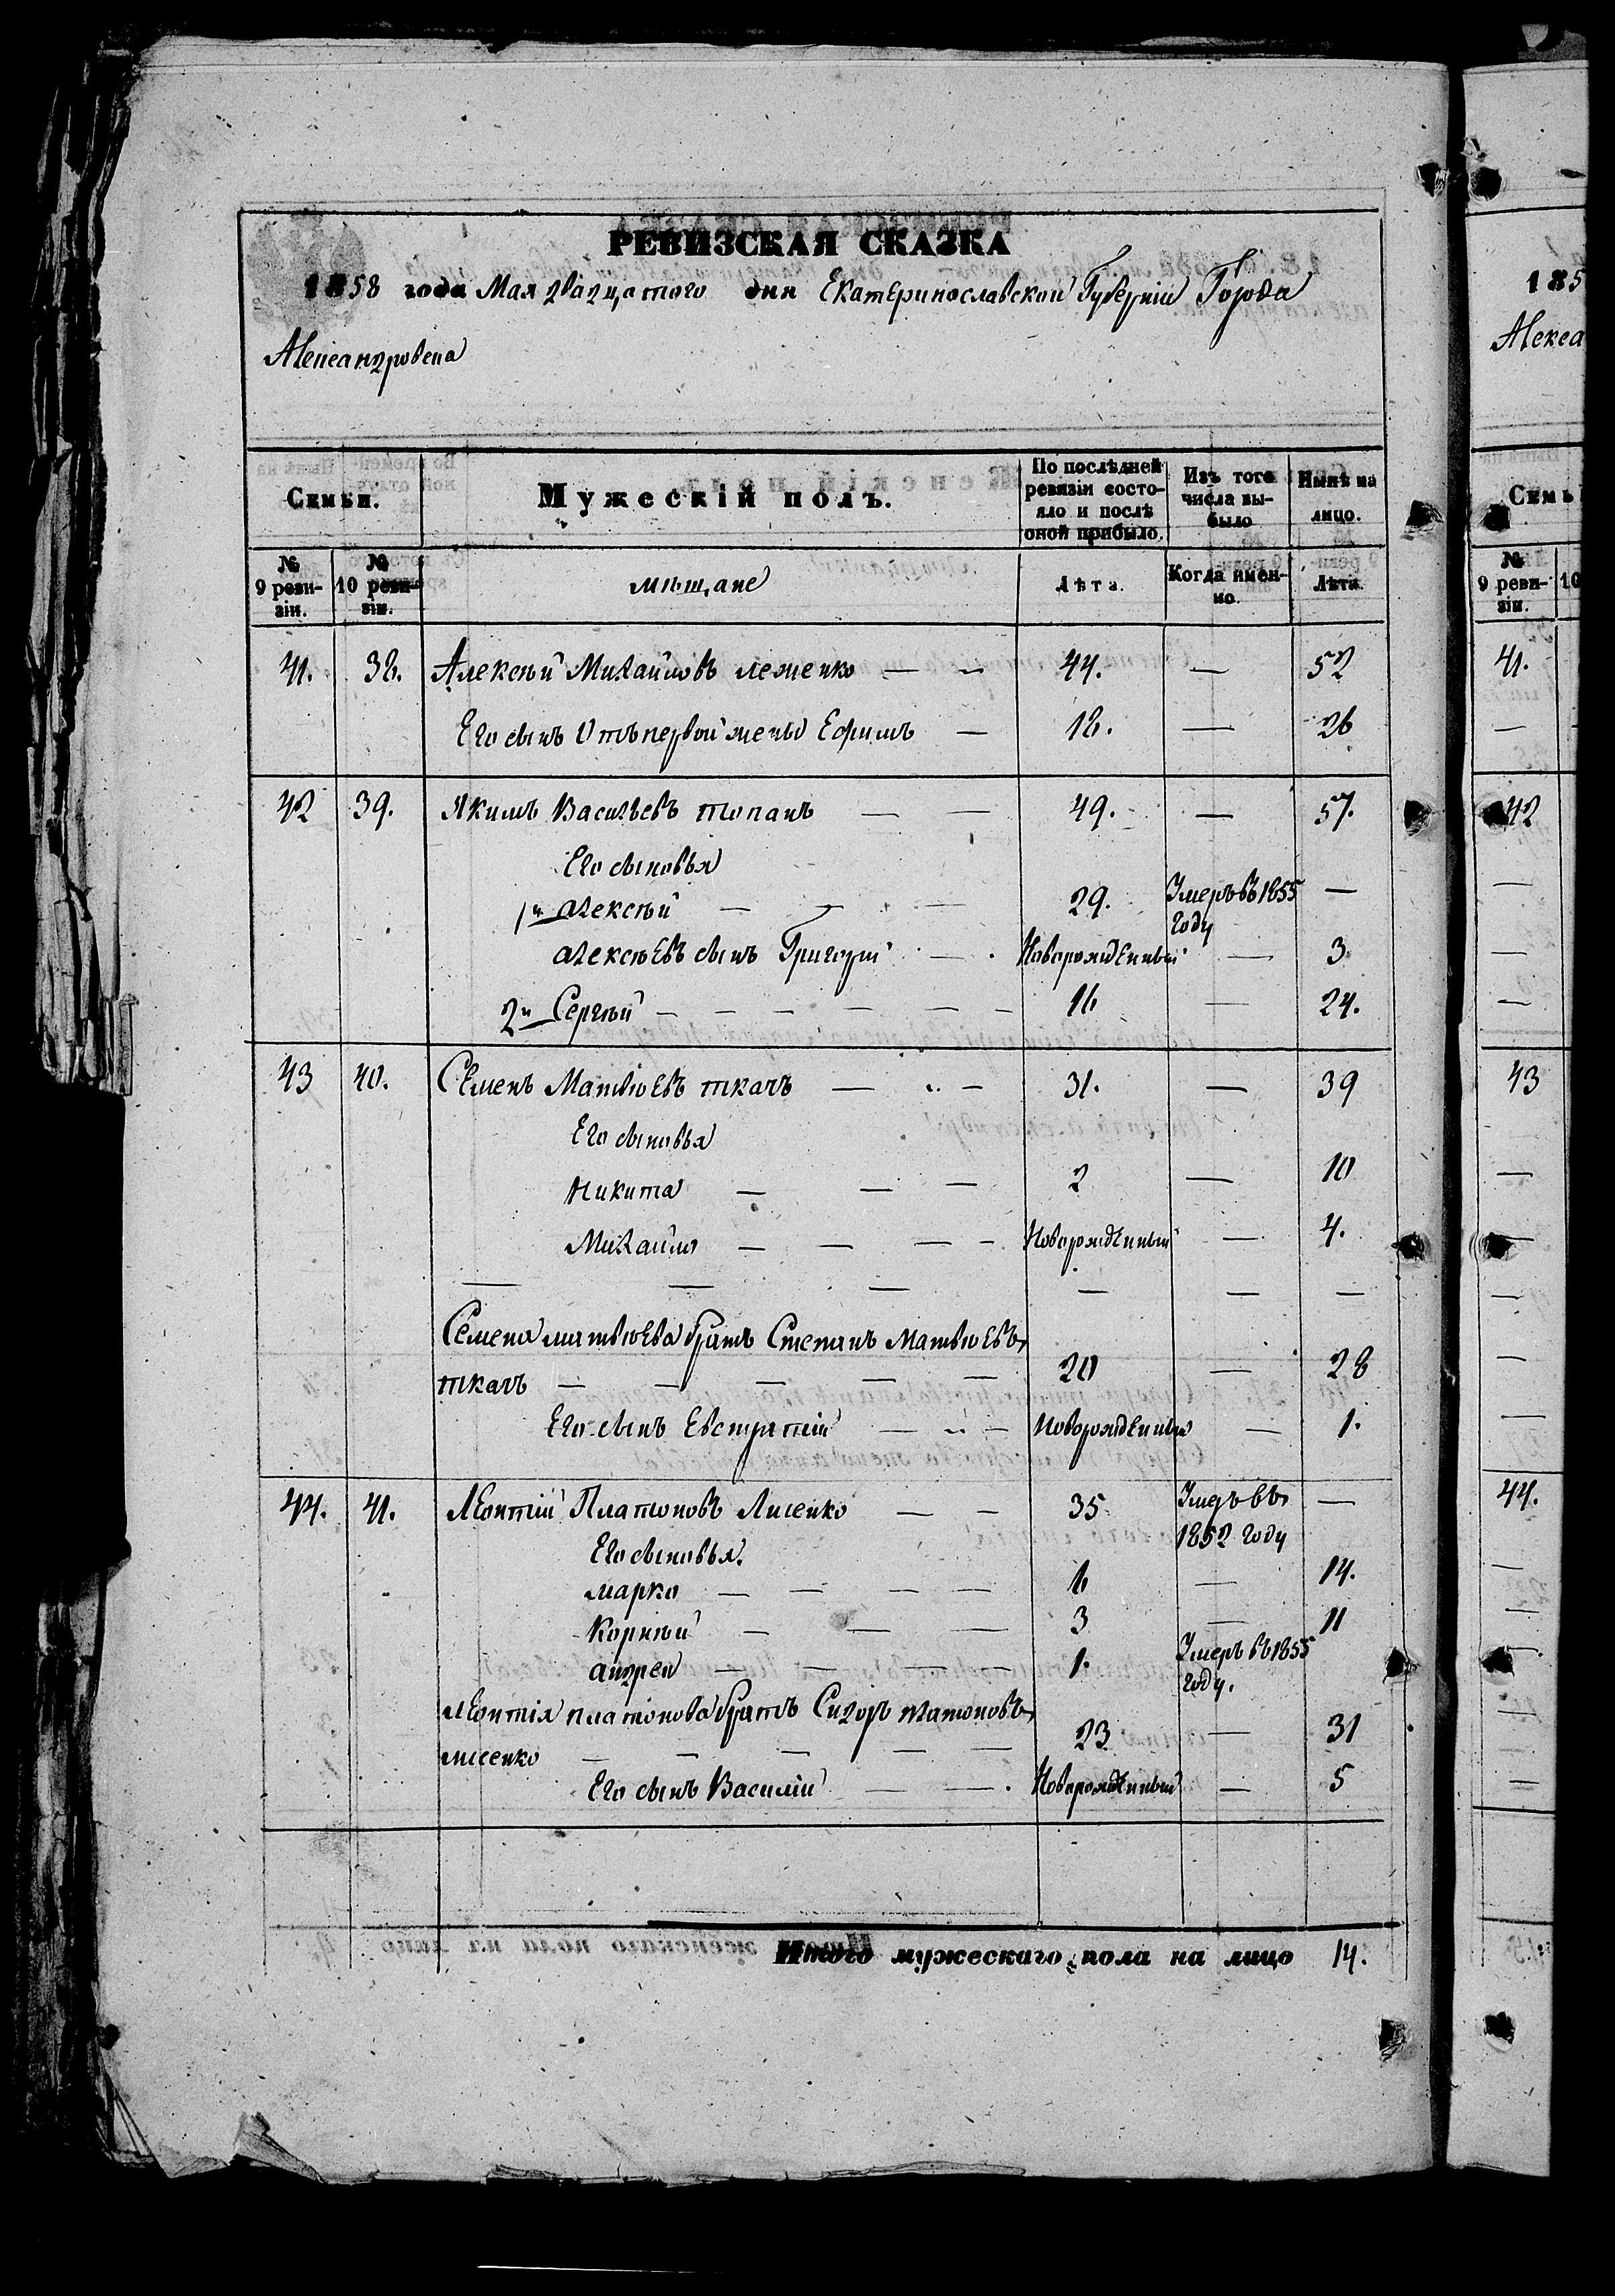 РЕВИЗСКАЯ СКАЗКА
1858 года Мая двадцатого дня Екатеринославской Губерніи Города
Александровска
Семьи.
Мужескій полъ.
По послѣдней ревизіи состояло и послѣ оной прибыло.
Изъ того числа выбыло
Нынѣ на лицо.
№ 9 ревизіи.
№ 10 ревизіи.
мѣщане
Лѣта.
Когда именно.
Лѣта.
41. 38. Алексѣй Михайловъ леженко — — 44. — 52
Его сынъ Отъ первой жены Ефимъ — 18. — 26
42 39. Якимъ Васильевъ топанъ — — 49. — 57.
Его сыновья
1й алексѣй — — — 29. Умеръ въ 1855 году —
алексѣевъ сынъ Григорій — Новорожденный — 3
2й Сергѣй — — — — — — 16 — 24.
43 40. Семенъ Матвѣевъ ткачъ — — 31. — 39
Его сыновья
Никита — — — 2 — 10
Михайло — — — — Новорожденный — 4.
— — — — — —
Семена матвѣева братъ Степанъ Матвѣевъ
ткачъ — — — — — 20 — 28
Его сынъ Евстратій — — Новорожденный — 1.
44. 41. Леонтій Платоновъ Лисенко — — 35 Умеръ въ 1852 году —
Его сыновья.
марко — — — — 6 — 14.
Корнѣй — — — 3 — 11
андрей — — — — 1. Умеръ въ 1855 году.
леонтія платонова братъ Сидоръ платоновъ
лисенко — — — — — 23 — 31
Его сынъ Василій — — Новорожденный — 5
Итого мужескаго пола на лицо 14.
185
Алекса
Семь
№ 9 ревизіи.
10
41.
—
42
—
—
—
43
—
—
—
—
—
44.
—
—
—
—
—